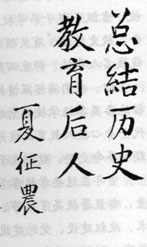 总结历史
教育后人
夏征農